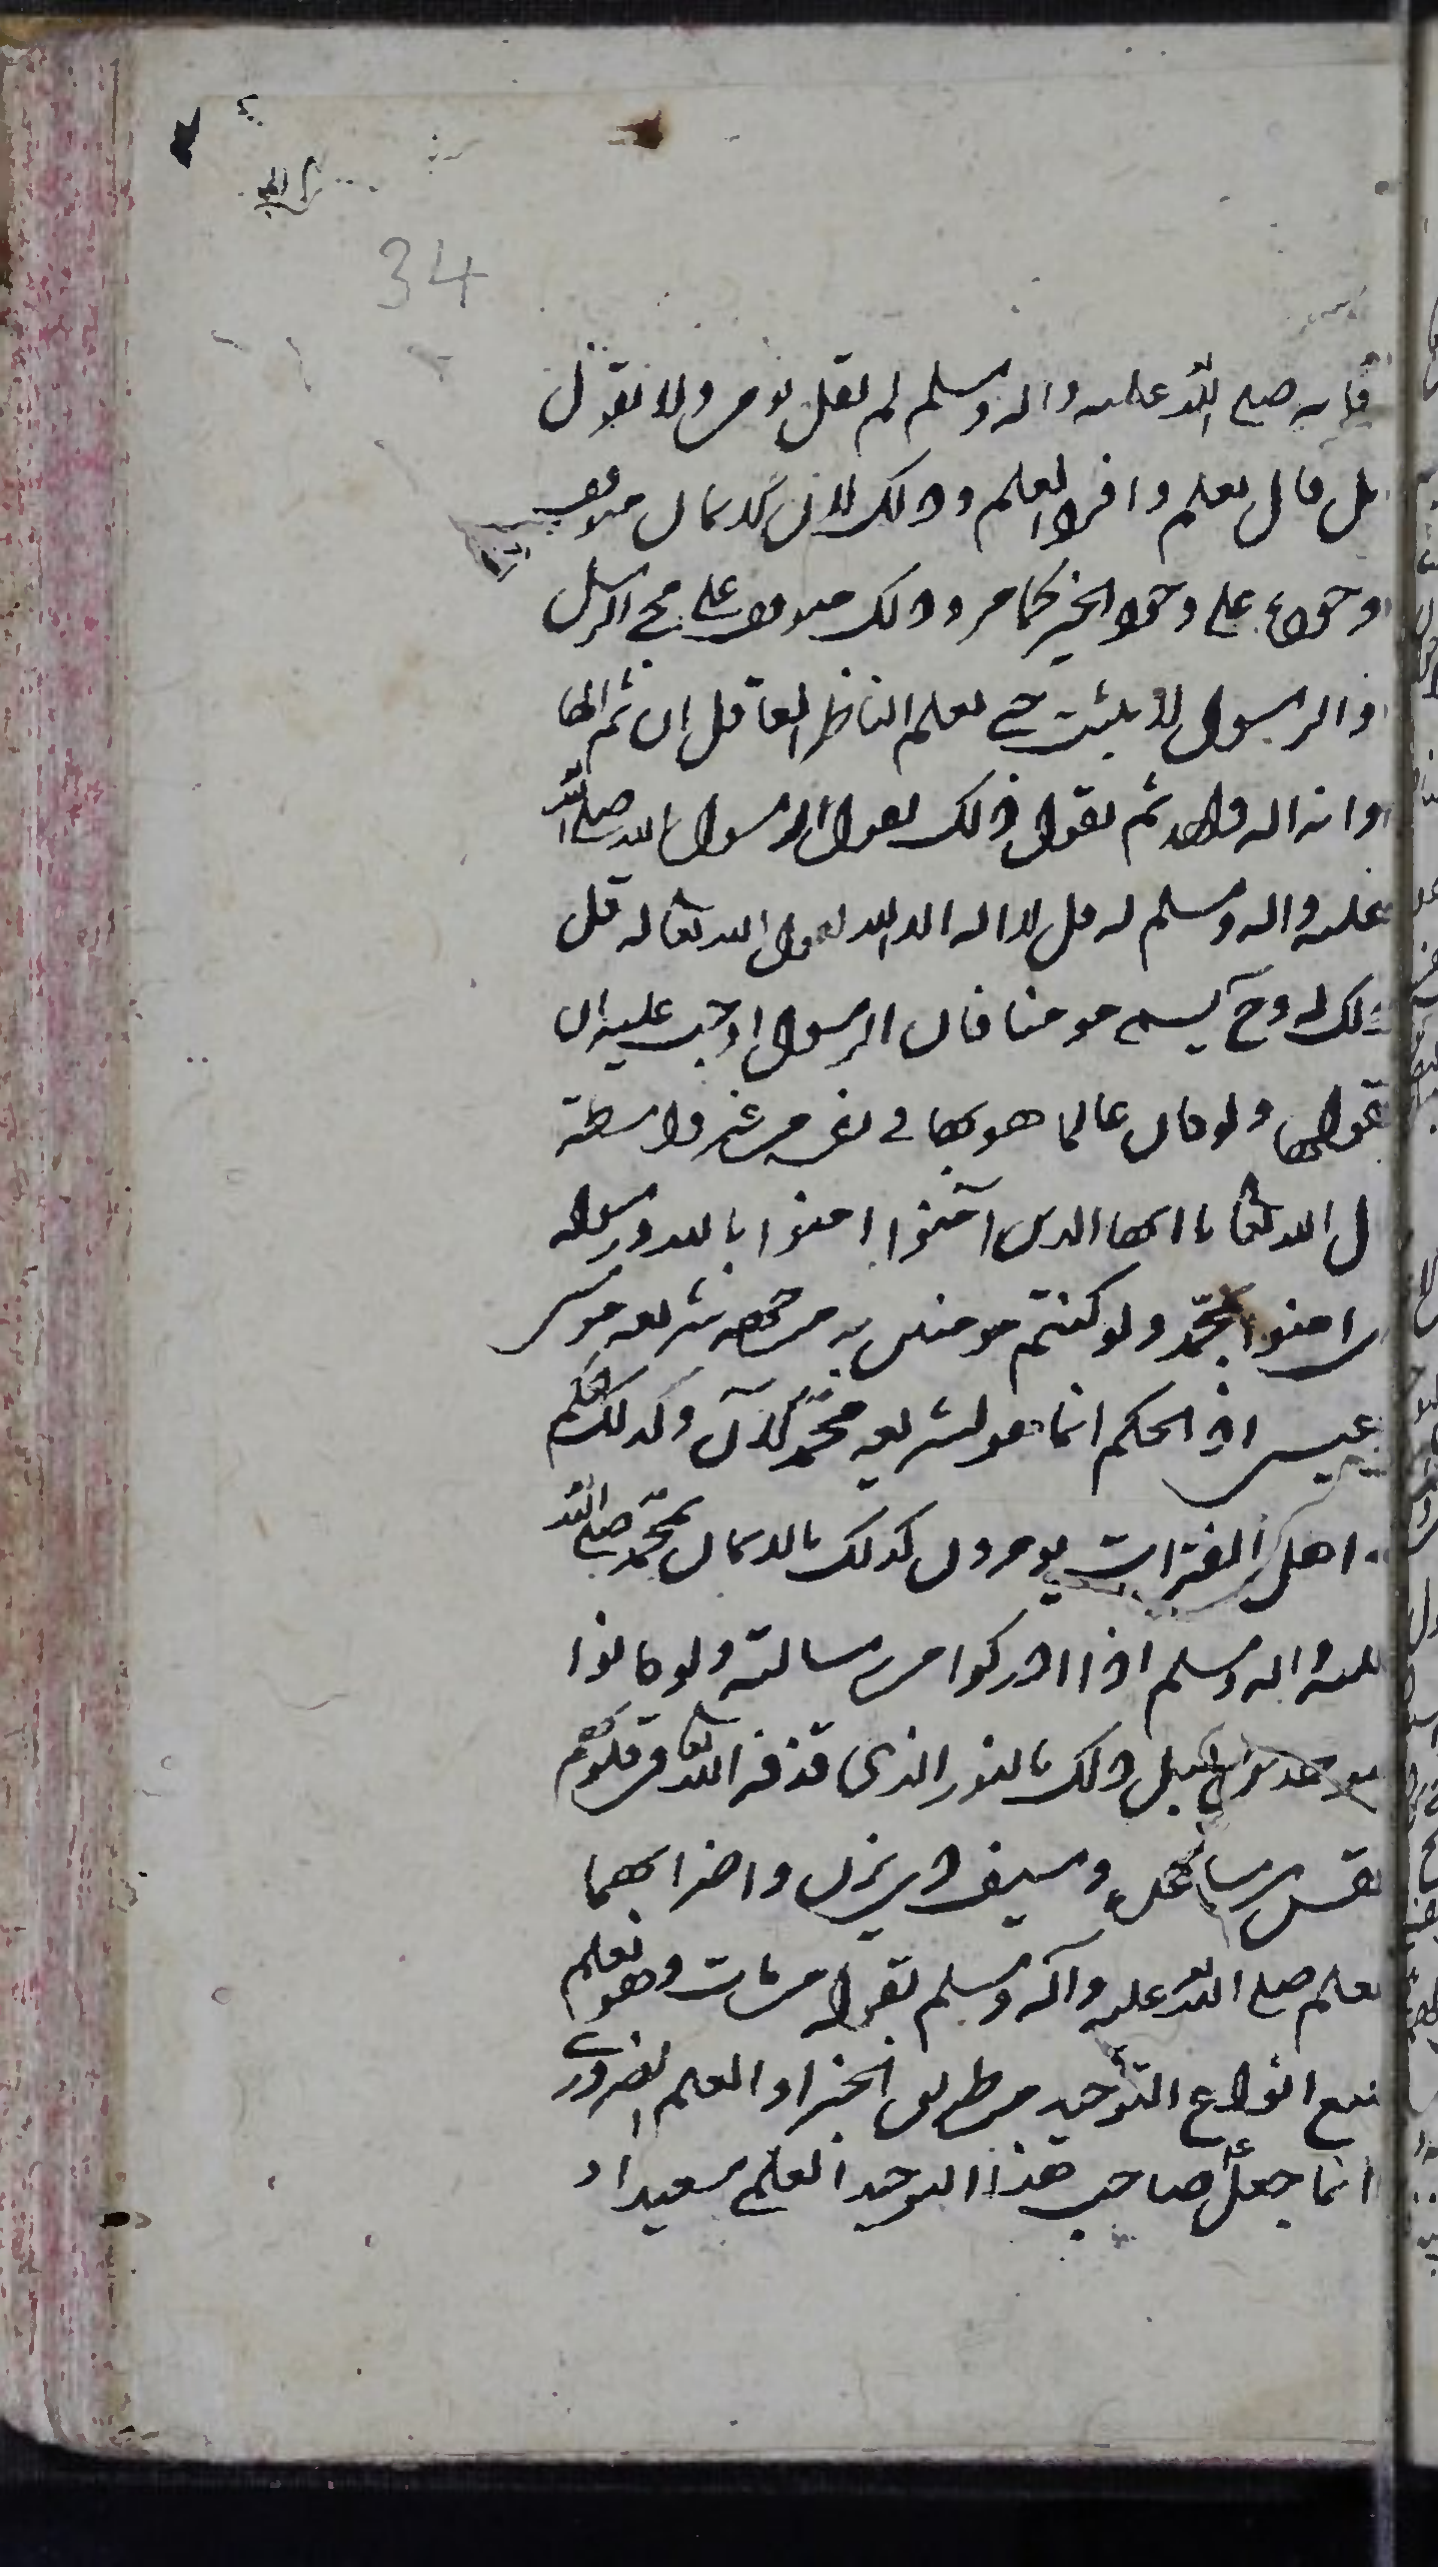 34
فإنه صلى الله عليه واله وسلم لم يقل يؤمن ولا يقول
بل قال يعلم وافرد العلم وذلك لان الايمان متوقف
وجوده على وجود الخبر كما مر وذلك موقوف على مجئ الرسل
والرسول لا يثبت حتى يعلم الناظر العاقل ان ثم الها
وانه اله واحد ثم يقول ذلك لقول الرسول الله صلى الله
عليه واله وسلم له قل لا اله الا الله لقول الله تعالى له قل
ذلك له وح يسمى مومنا فان الرسول اوجب عليه ان
يقولها ولو كان عالما هو بها في نفسه من غير واسطة
ل الله تعالى يا ايها الذين آمنوا امنوا بالله ورسوله
امنوا بمحمد ولو كنتم مومنين به من جهة شريعه موسى
عيسى اذ الحكم انما هو لشريعه محمد الآن وكذلك حكم
اهل الفترات يومرون كذلك بالايمان بمحمد صلى الله
عليه واله وسلم اذا ادركوا من رسالته ولو كانوا
موحدين قبل ذلك بالنور الذي قذفه الله تعالى في قلوبهم
كقس بن ساعدة وسيف ذي يزن واضرابهما
يعلم صلى الله عليه وآله وسلم بقوله من مات وهو يعلم
جميع انواع التوحيد من طريق الخبر او العلم الضروري
انما جعل صاحب هذا التوحيد العلم سعيدا و